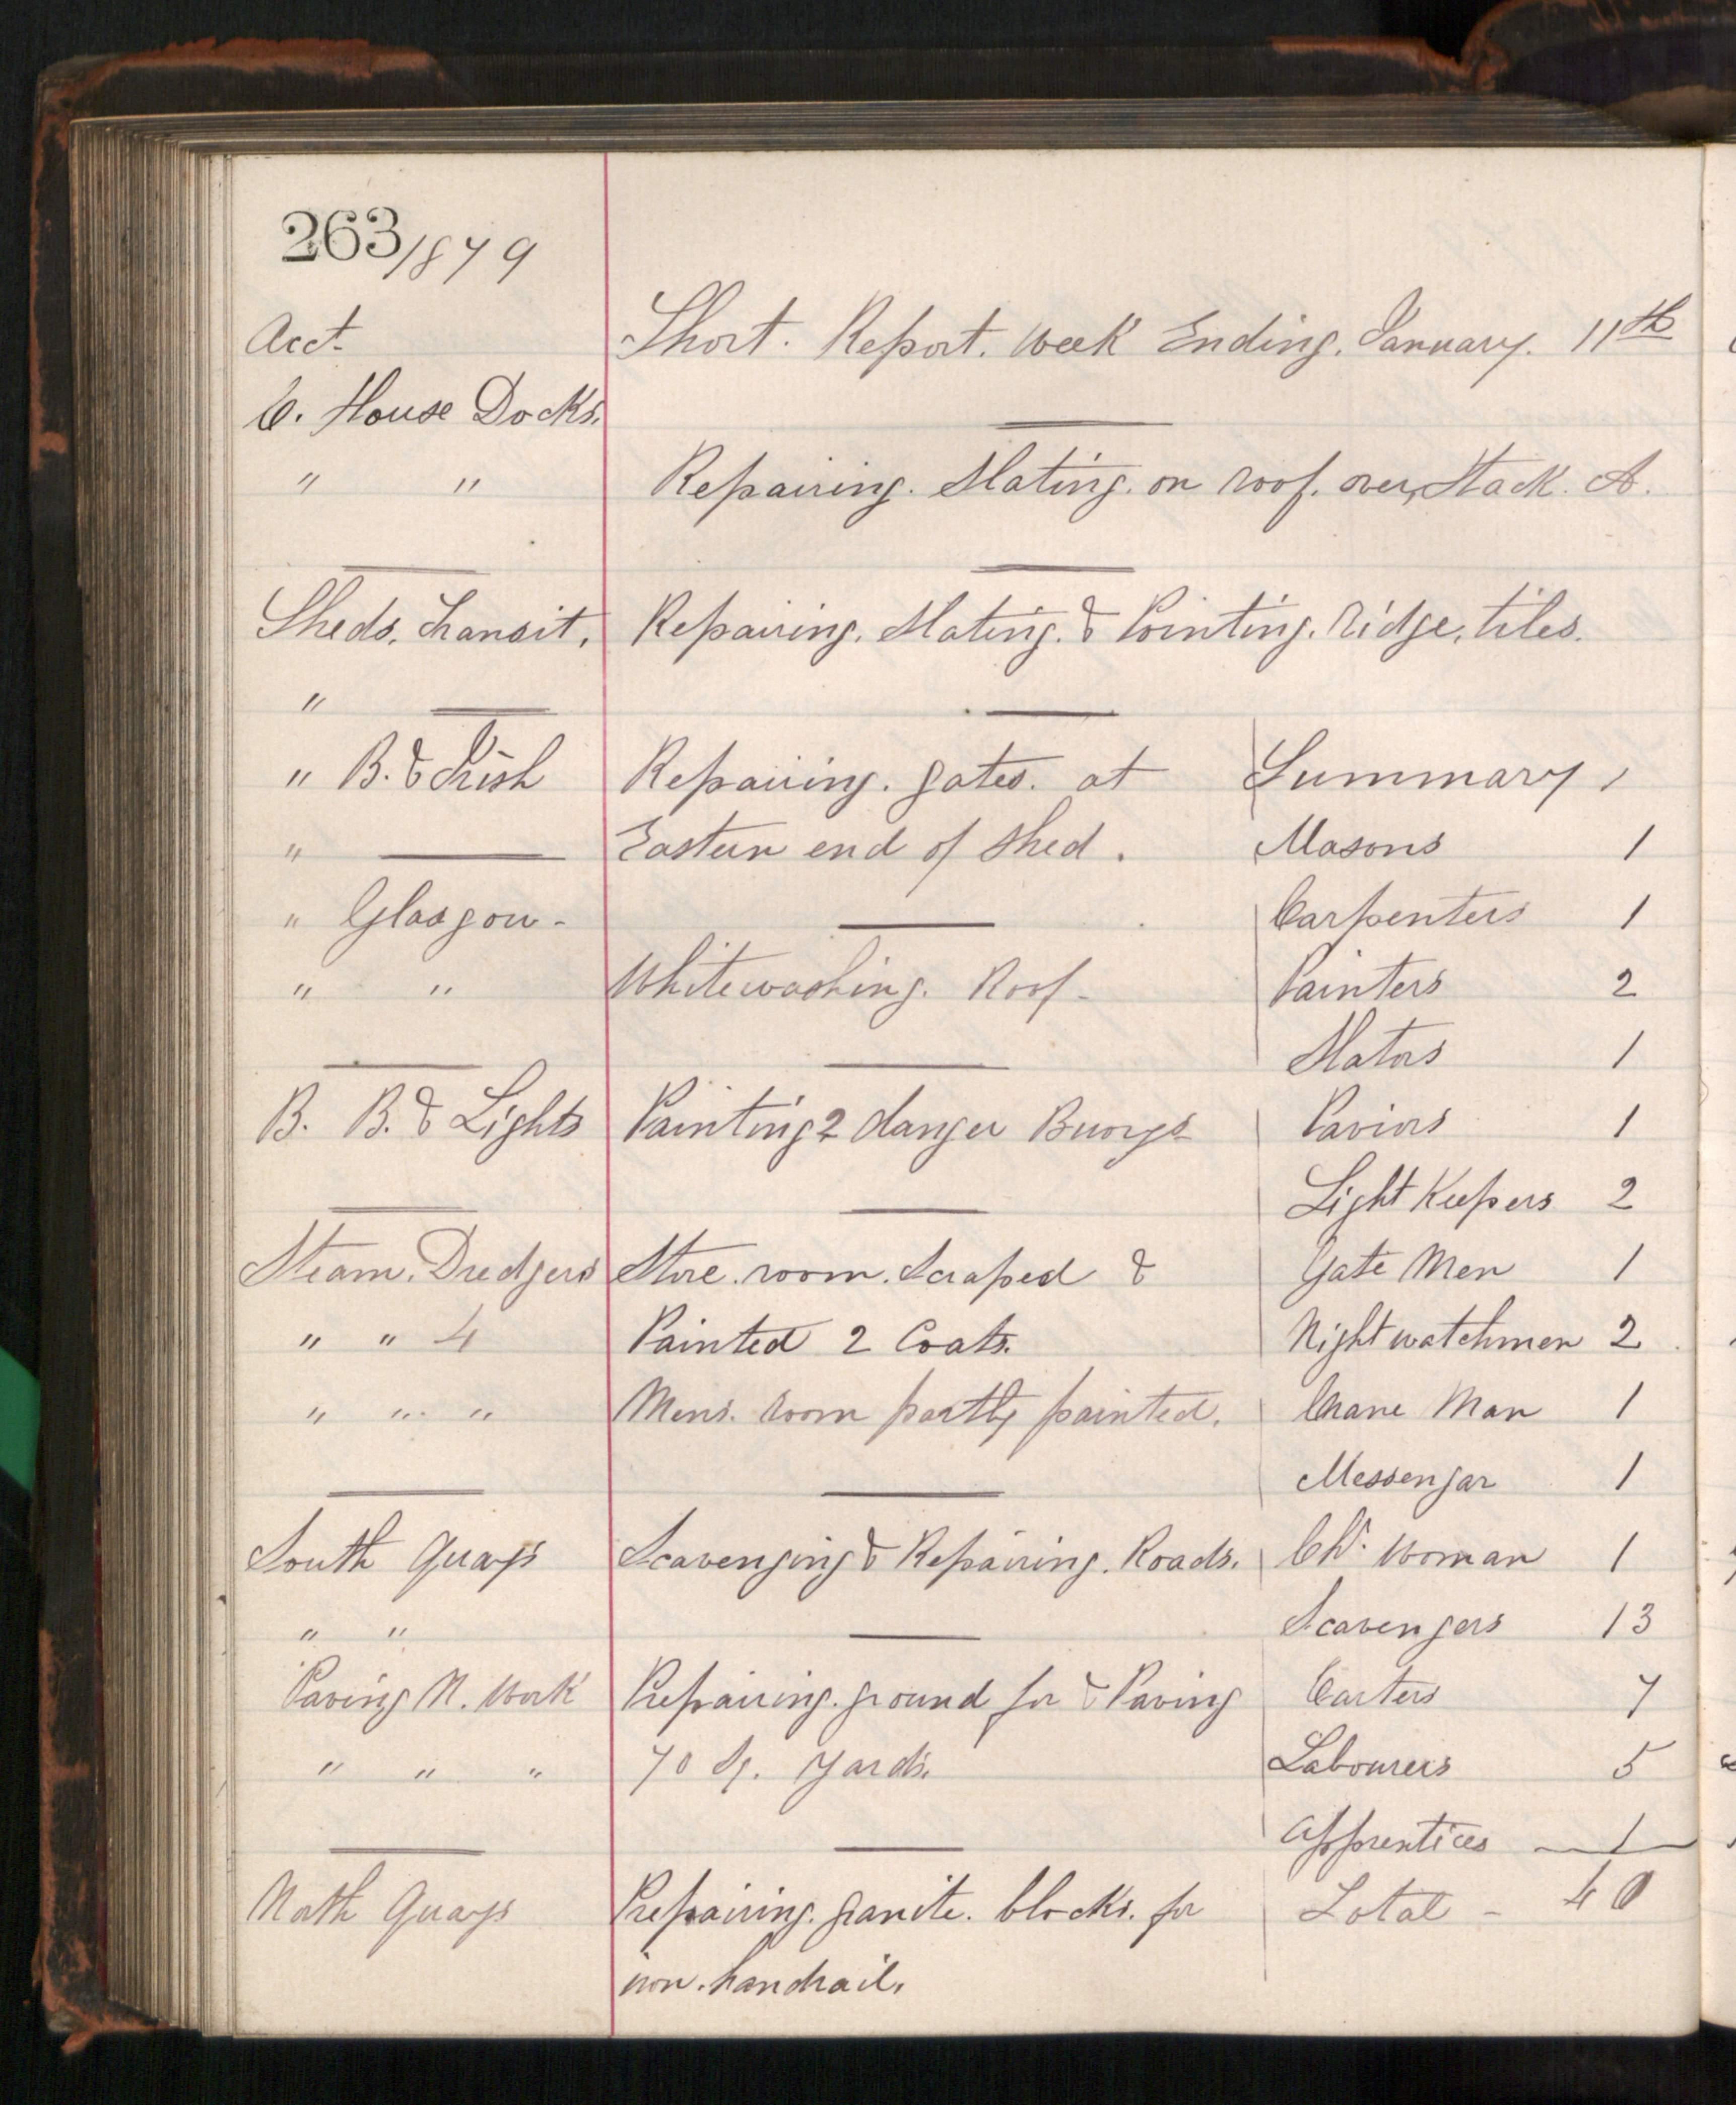 263/1879
Acct. Short. Report. Week Ending. January. 11th
C. House Docks.
" " Repairing. Slating. on roof. over, Stack. A.
Sheds. Transit. Repairing. Slating. & Pointing. ridge. tiles.
"
" B. & Irish Repairing. gates. at Summary
" Eastern end of Shed. Masons 1
" Glasgow - Carpenters 1
" " Whitewashing. Roof - Painters 2
Slaters 1
B. B. & Lights Painting 2 danger Buoys Paviors 1
Light Keepers 2
Steam. Dredgers Store. room. Scraped & Gate Men 1
" " 4 Painted 2 Coats. Night watchmen 2
" " " Mens. room partly painted. Crane Man 1
Messenger 1
South Quays Scavenging & Repairing. Roads. Ch. Woman 1
" " Scavengers 13
Paving N. Work Preparing. ground for & Paving Carters 7
" " " 70 Sq. Yards. Labourers 5
Apprentices 1
North Quays Preparing. granite. blocks. for Total - 40
iron. handrail.